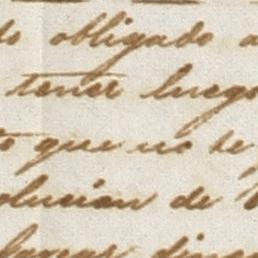 to obligado a
tener luego
to que no te
olucion de